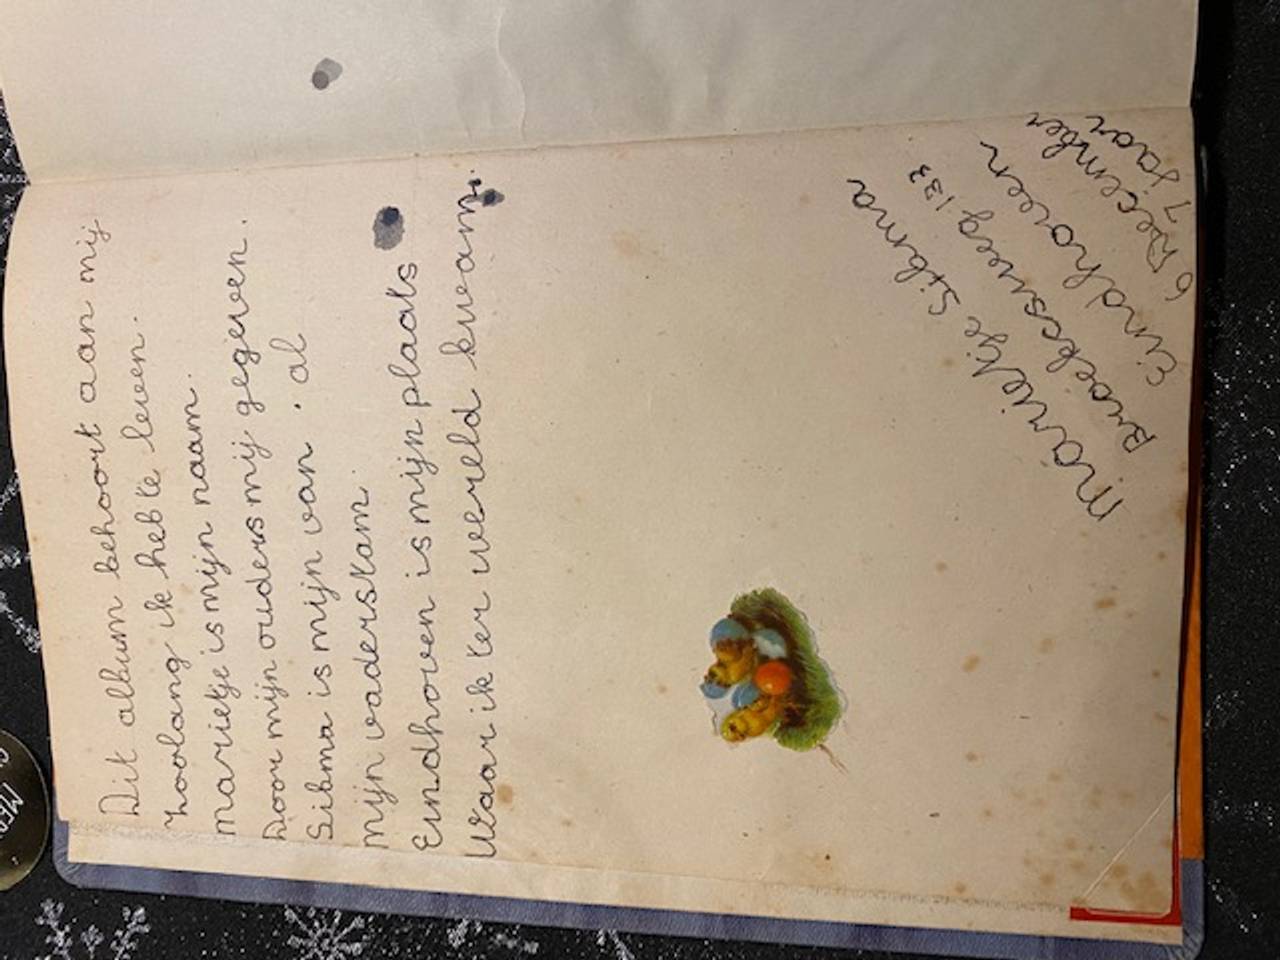 Dit album behoort aan mij
Zoolang ik heb te leven.
marietje is mijn naam.
Door mijn ouders mij gegeven.
Sibma is mijn van. al
mijn vaderstam.
Eindhoven is mijn plaats
Waar ik ter wereld kwam.
marietje Sibma
Broekseweg 133
Eindhoveen
6 December
7 Jaar